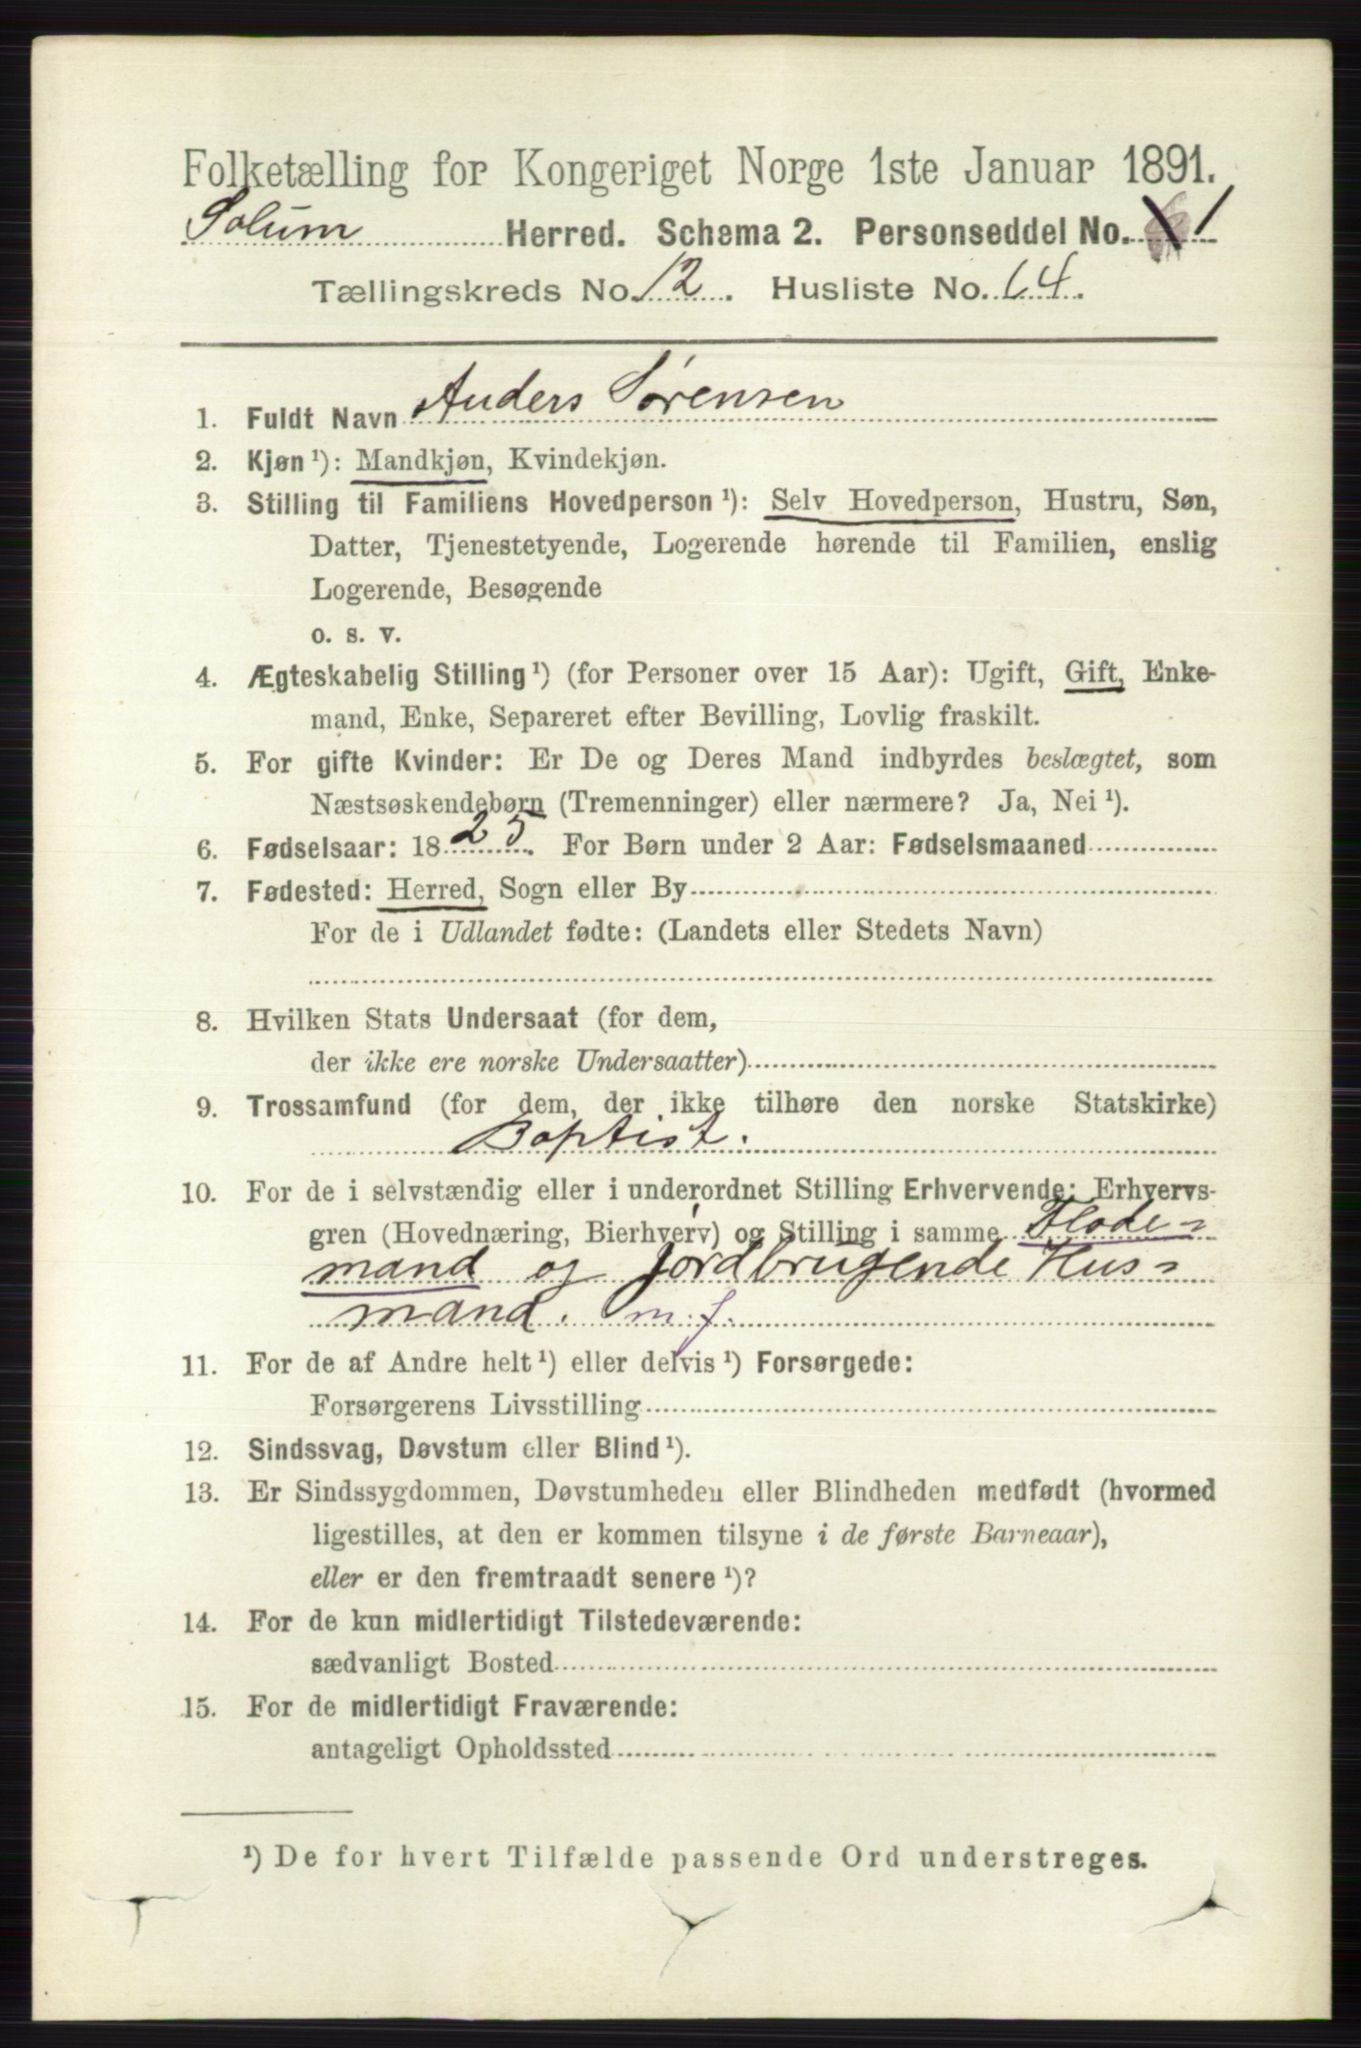 Folketælling for Kongeriget Norge 1ste Januar 1891.
Solum Herred. Schema 2. Personseddel No. 1
Tællingskreds No. 12. Husliste No. 64.
1. Fuldt Navn Anders Sørensen
2. Kjøn ¹): Mandkjøn, Kvindekjøn.
3. Stilling til Familiens Hovedperson ¹): Selv Hovedperson, Hustru, Søn,
Datter, Tjenestetyende, Logerende hørende til Familien, enslig
Logerende, Besøgende
o. s. v.
4. Ægteskabelig Stilling ¹) (for Personer over 15 Aar): Ugift, Gift, Enke-
mand, Enke, Separeret efter Bevilling, Lovlig fraskilt.
5. For gifte Kvinder: Er De og Deres Mand indbyrdes beslægtet, som
Næstsøskendebørn (Tremenninger) eller nærmere? Ja, Nei ¹).
6. Fødselsaar: 1825. For Børn under 2 Aar: Fødselsmaaned
7. Fødested: Herred, Sogn eller By
For de i Udlandet fødte: (Landets eller Stedets Navn)
8. Hvilken Stats Undersaat (for dem,
der ikke ere norske Undersaatter)
9. Trossamfund (for dem, der ikke tilhøre den norske Statskirke)
Baptist.
10. For de i selvstændig eller i underordnet Stilling Erhvervende: Erhvervs-
gren (Hovednæring, Bierhverv) og Stilling i samme Flode-
mand og jordbrugende Hus-
mand. m. f.
11. For de af Andre helt ¹) eller delvis ¹) Forsørgede:
Forsørgerens Livsstilling
12. Sindssvag, Døvstum eller Blind ¹).
13. Er Sindssygdommen, Døvstumheden eller Blindheden medfødt (hvormed
ligestilles, at den er kommen tilsyne i de første Barneaar),
eller er den fremtraadt senere ¹)?
14. For de kun midlertidigt Tilstedeværende:
sædvanligt Bosted
15. For de midlertidigt Fraværende:
antageligt Opholdssted
¹) De for hvert Tilfælde passende Ord understreges.